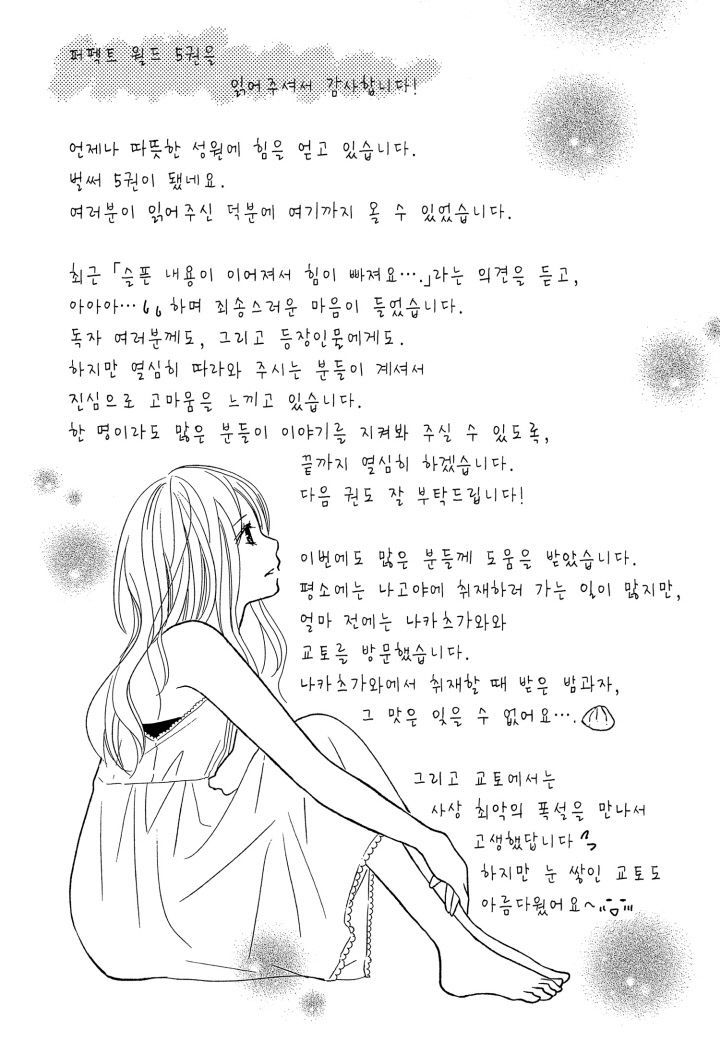 퍼펙트 월드 5권을
읽어주셔서 감사합니다!
언제나 따뜻한 성원에 힘을 얻고 있습니다.
벌써 5권이 됐네요.
여러분이 읽어주신 덕분에 여기까지 올 수 있었습니다.
최근 「슬픈 내용이 이어져서 힘이 빠져요….」라는 의견을 듣고,
아아아… 하며 죄송스러운 마음이 들었습니다.
독자 여러분께도, 그리고 등장인물에게도.
하지만 열심히 따라와 주시는 분들이 계셔서
진심으로 고마움을 느끼고 있습니다.
한 명이라도 많은 분들이 이야기를 지켜봐 주실 수 있도록,
끝까지 열심히 하겠습니다.
다음 권도 잘 부탁드립니다!
이번에도 많은 분들께 도움을 받았습니다.
평소에는 나고야에 취재하러 가는 일이 많지만,
얼마 전에는 나카츠가와와
교토를 방문했습니다.
나카츠가와에서 취재할 때 받은 밤과자,
그 맛은 잊을 수 없어요….
그리고 교토에서는
사상 최악의 폭설을 만나서
고생했답니다
하지만 눈 쌓인 교토도
아름다웠어요~